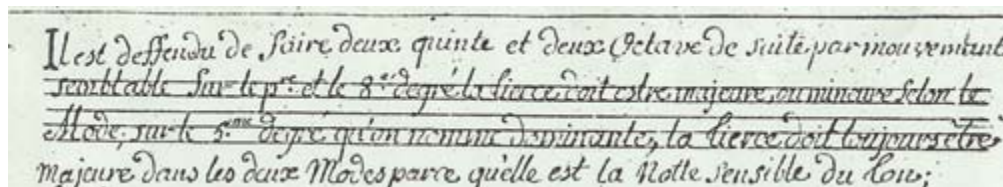 Il est deffendu de faire deux quinte et deux Octave de suite par mouvement
semblable Sur le p.re et le 8.e degré la tierce doit estre majeure, ou mineure selon le
Mode, sur le 5.eme degré qu'on nomme dominante, la tierce doit toujours être
majeure dans les deux Modes parce qu'elle est la Notte sensible du ton;